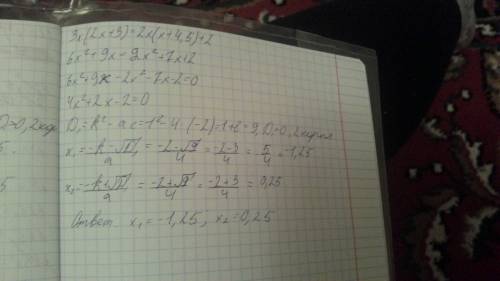 3x(2x+3)=2x(x+4,5)+2
6x²+9x=2x²+7x+2
6x²+9x-2x²-7x-2=0
4x²+2x-2=0
D₁=k²-ac=1²-4·(-2)=1+8=9, D>0, 2 корня
x₁=(-k-√D₁)/a=(-2-√9)/4=(-2-3)/4=5/4=-1,25
x₂=(-k+√D₁)/a=(-2+√9)/4=(-2+3)/4=0,25
Ответ: x₁=-1,25; x₂=0,25